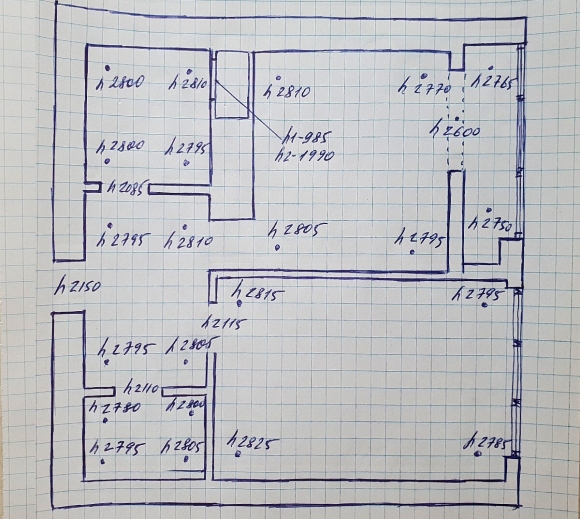 h2800
h2810
h2810
h2770
h2765
h2600
h1-985
h2-1990
h2800
h2795
h2085
h2795
h2810
h2805
h2795
h2750
h2150
h2815
h2795
h2115
h2795
h2805
h2110
h2780
h2800
h2795
h2805
h2825
h2785